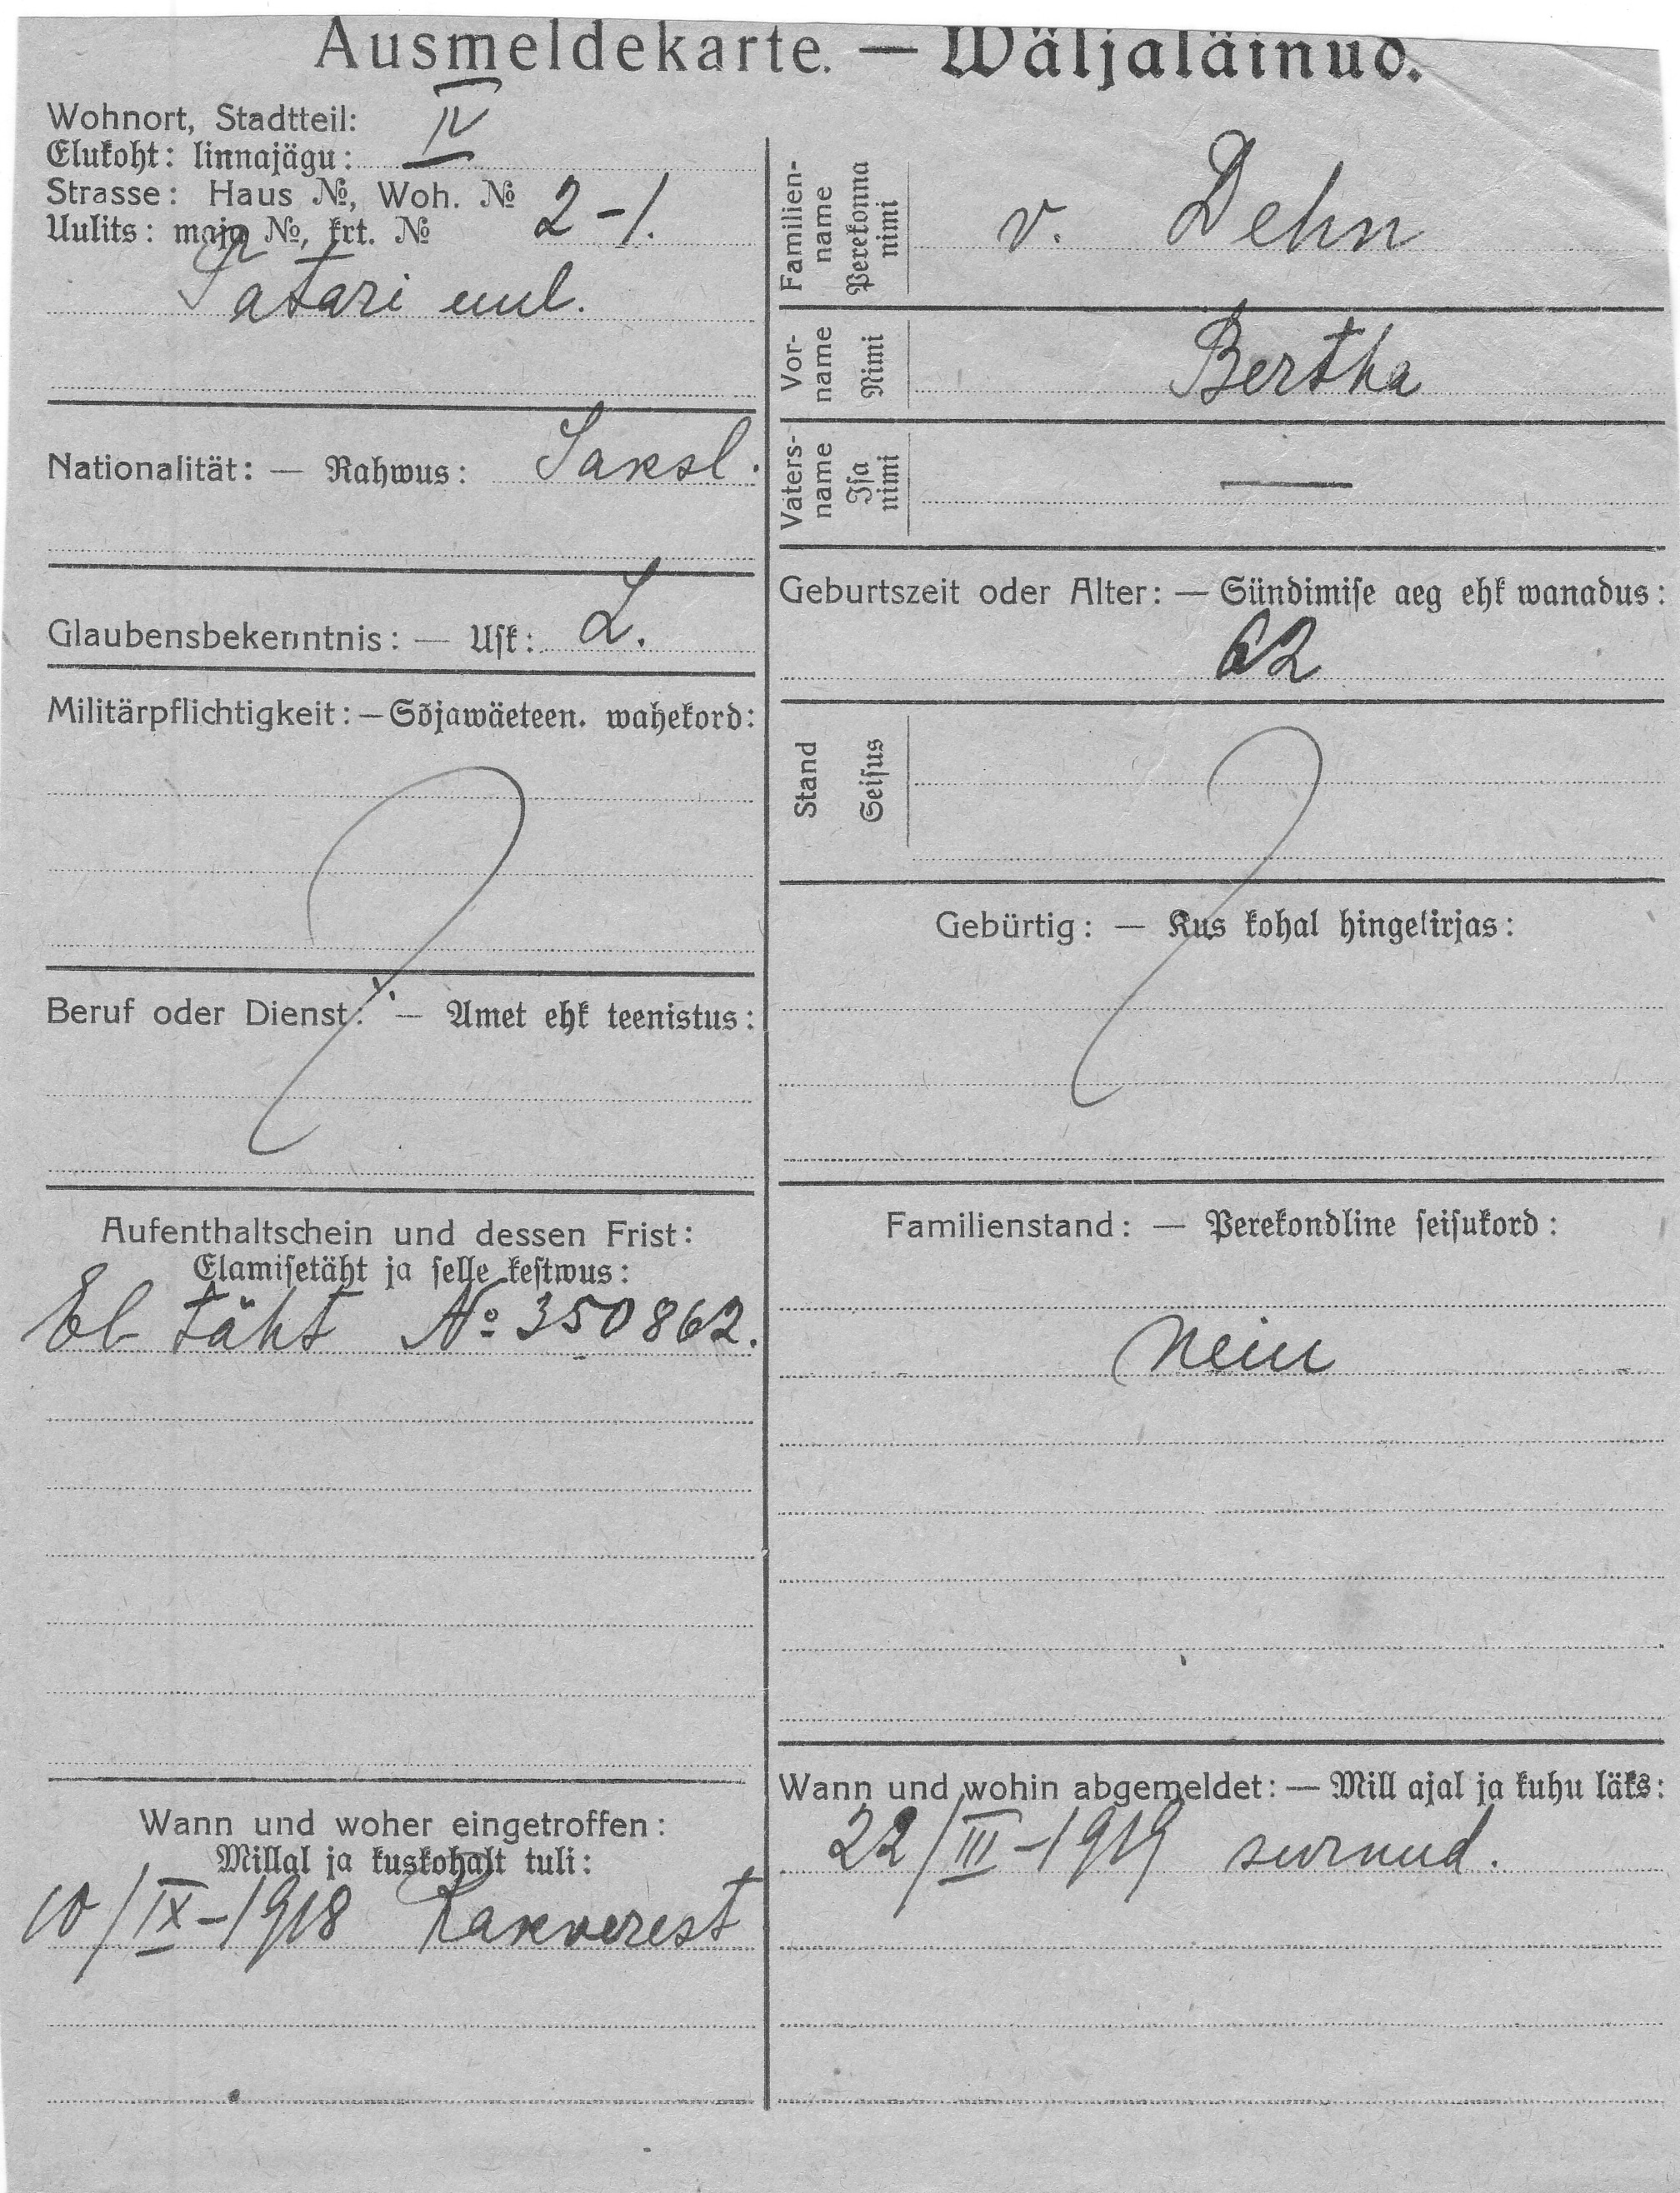 Ausmeldekarte. — Wäljaläinud.
Wohnort, Stadtteil:
Elukoht: linnajägu: IV
Strasse: Haus №, Woh. №
Uulits: maja №, krt. № 2-1.
Tatari uul.
Nationalität: — Rahwus: Saksl.
Glaubensbekenntnis: — Usk: L.
Militärpflichtigkeit: — Sõjawäeteen. wahekord:
Beruf oder Dienst: — Amet ehk teenistus:
Aufenthaltschein und dessen Frist:
Elamisetäht ja selle kestwus:
El täht № 350862.
Wann und woher eingetroffen:
Millal ja kuskohalt tuli:
10/IX-1918 Rakverest
Familien-
name
Perekonna
nimi
v. Dehn
Vor-
name
Nimi
Bertha
Vaters-
name
Isa
nimi
—
Geburtszeit oder Alter: — Sündimise aeg ehk wanadus:
62
Stand
Seisus
Gebürtig: — Kus kohal hingekirjas:
Familienstand: — Perekondline seisukord:
Nein
Wann und wohin abgemeldet: — Mill ajal ja kuhu läks:
22/III-1919 surnud.